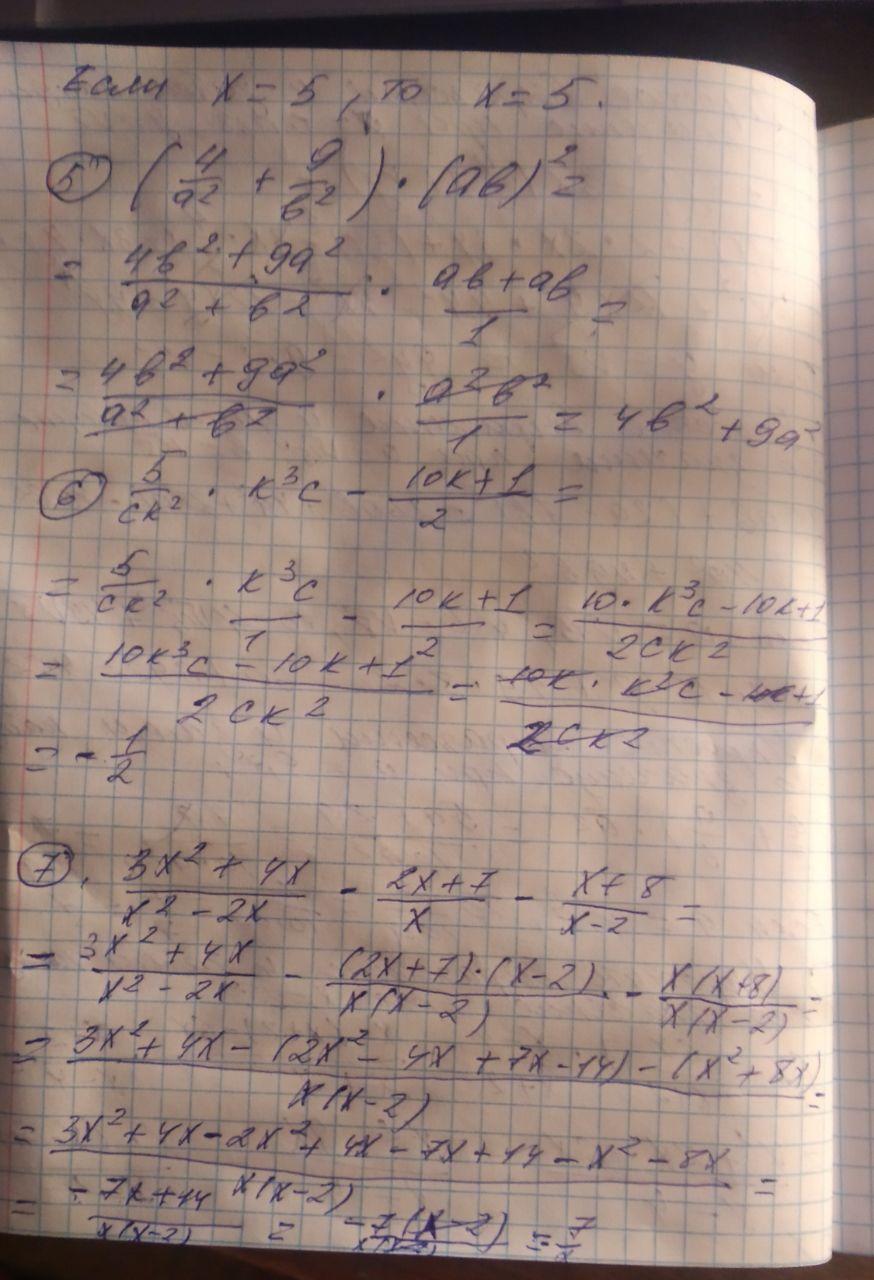 Если x = 5, то x = 5.
⑤ (4/a² + 9/в²) · (aв)² =
= (4в² + 9a²)/(a² + в²) · (aв + aв)/1 =
= (4в² + 9a²)/(a² + в²) · (a²в²)/1 = 4в² + 9a²
⑥ 5/(cк²) · к³c - (10к+1)/2 =
= 5/(cк²) · к³c/1 - (10к+1)/2 = (10 · к³c - 10к+1)/(2cк²)
= (10к³c - 10к + 1)/(2cк²) = (10к · к²c - 10к+1)/(2cк²)
= - 1/2
⑦. (3x² + 4x)/(x² - 2x) - (2x+7)/x - (x+8)/(x-2) =
= (3x² + 4x)/(x² - 2x) - ((2x+7)·(x-2))/(x(x-2)) - (x(x+8))/(x(x-2)) =
= (3x² + 4x - (2x² - 4x + 7x - 14) - (x² + 8x))/(x(x-2)) =
= (3x² + 4x - 2x² + 4x - 7x + 14 - x² - 8x)/(x(x-2)) =
= (-7x + 14)/(x(x-2)) = (-7(x-2))/(x(x-2)) = - 7/x